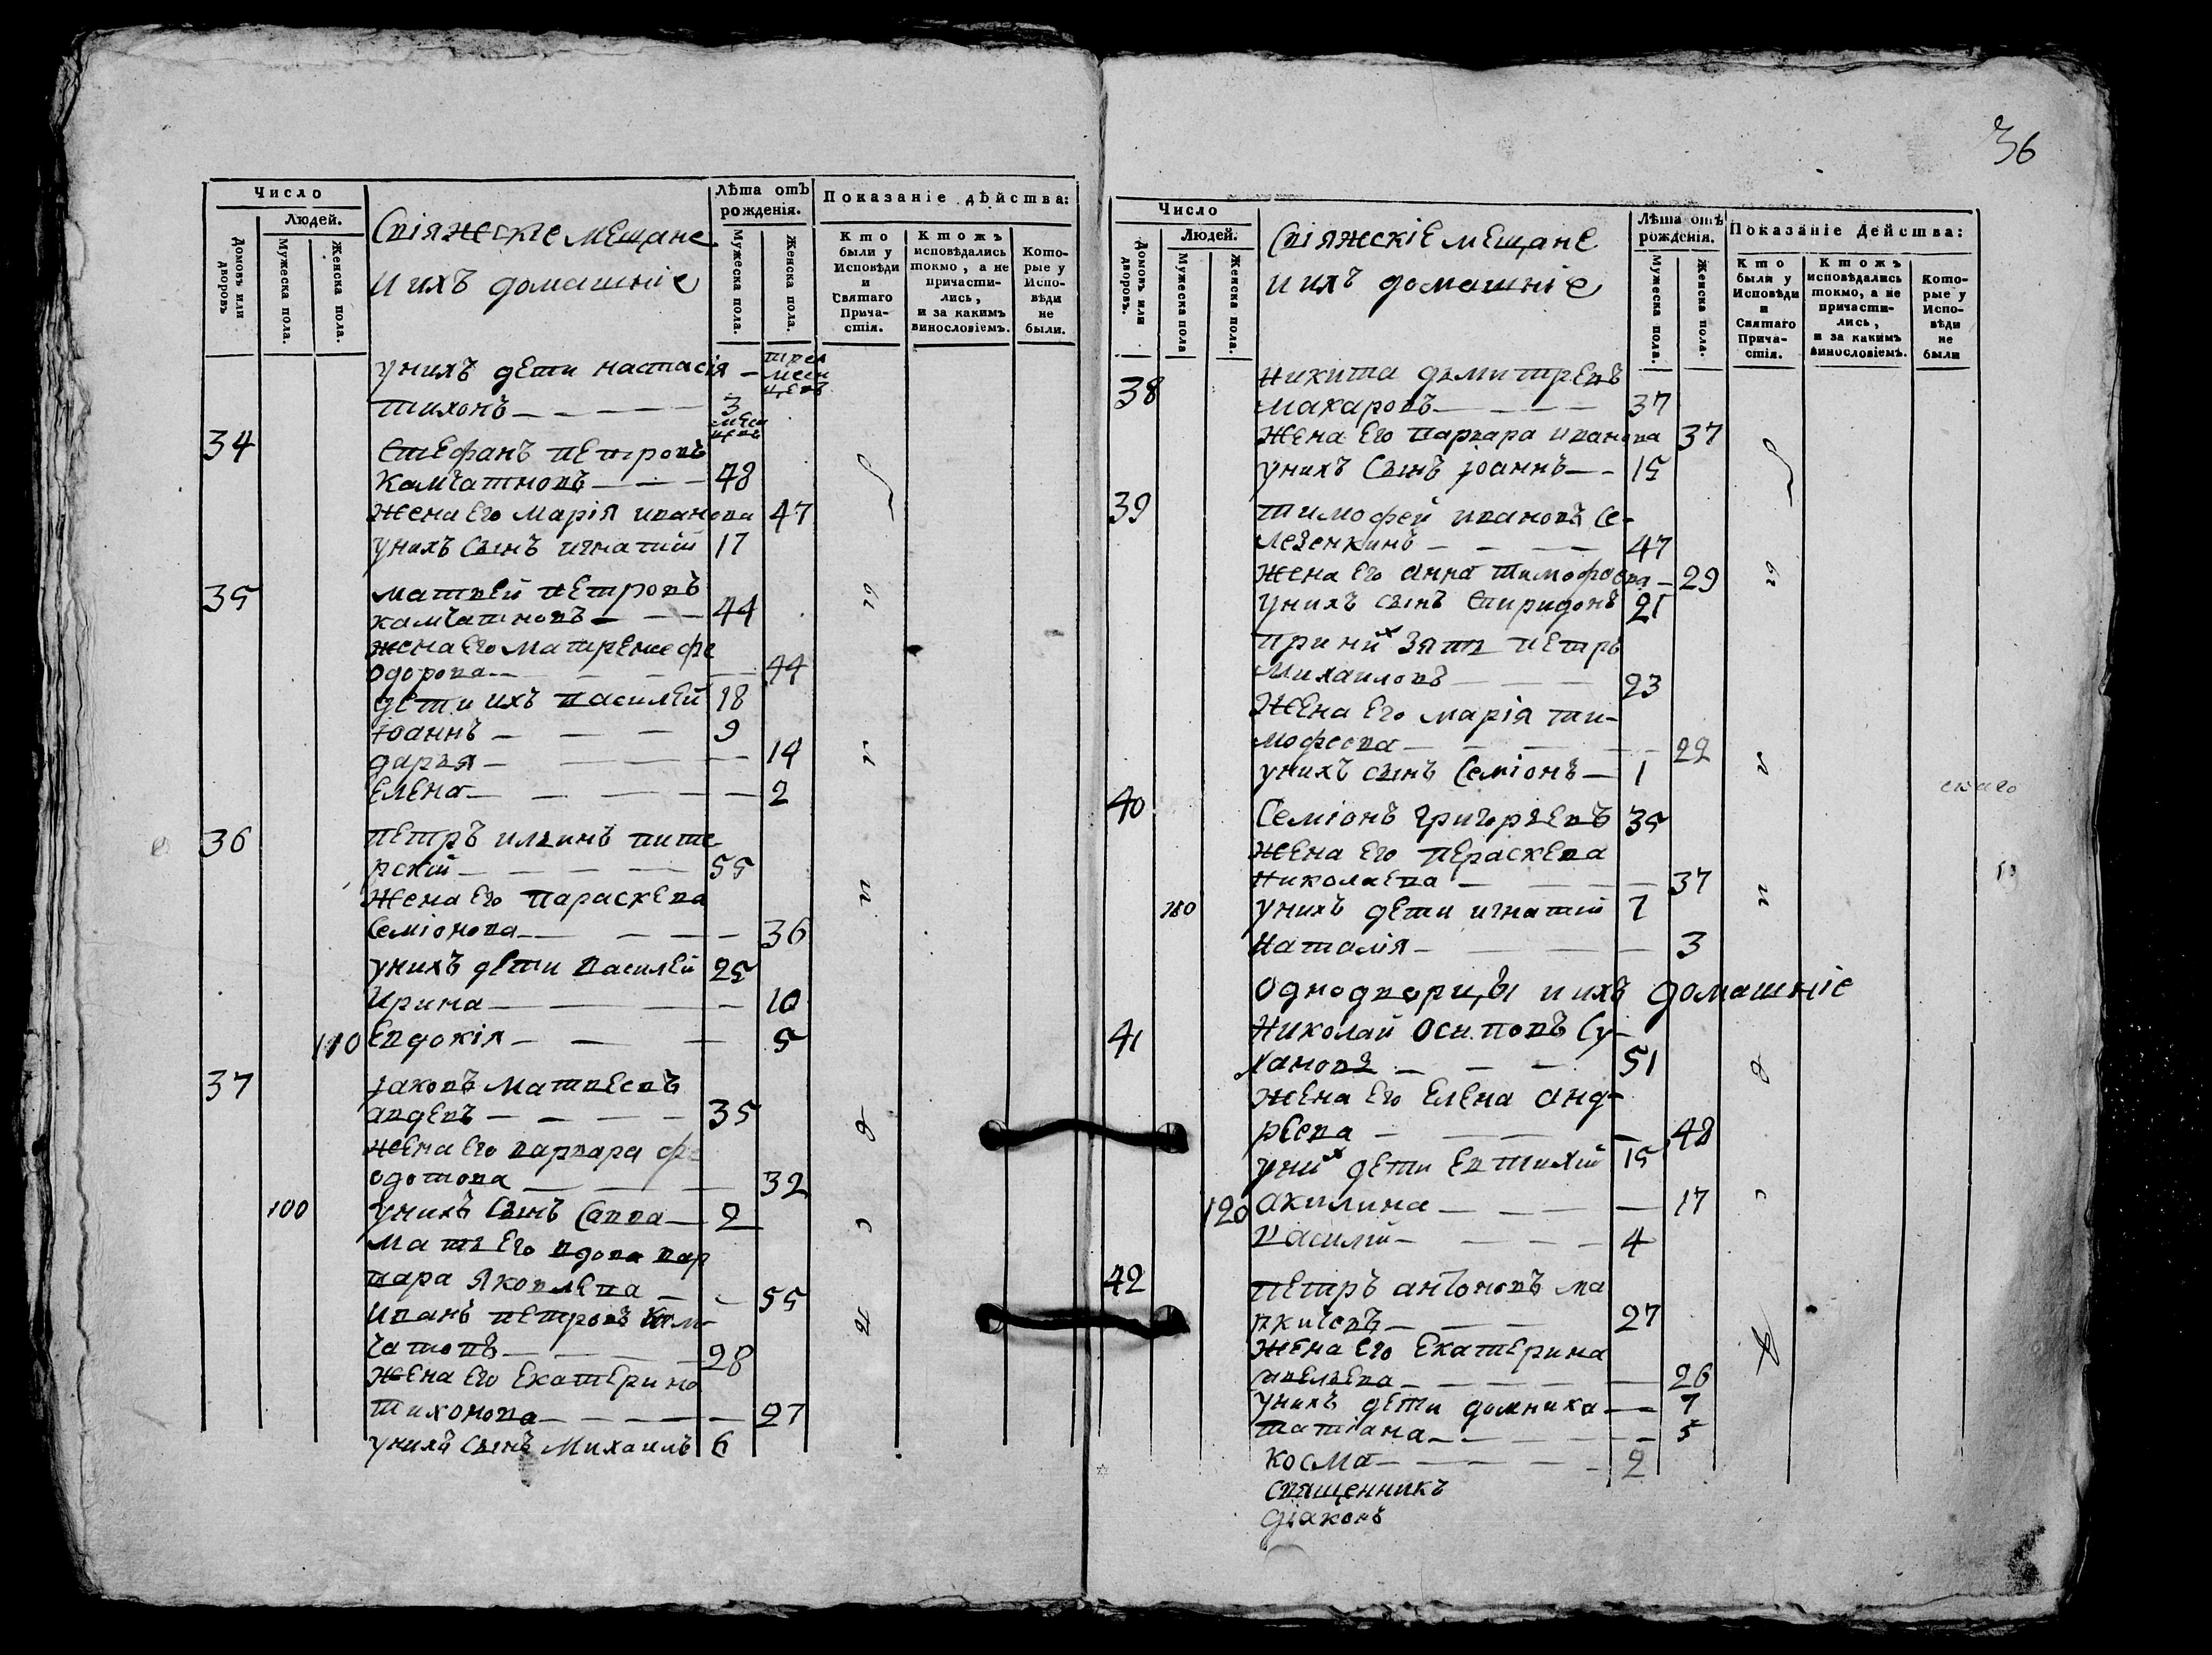 36
Число
Людей.
Домовъ или дворовъ
Мужеска пола.
Женска пола.
Свіяжскіе мещане
и ихъ домашніе
Лѣта отъ рожденія.
Мужеска пола.
Женска пола.
Показаніе дѣйства:
Кто были у Исповѣди и Святаго Прича-стія.
Ктожъ исповѣдались токмо, а не причасти-лись, и за какимъ винословіемъ.
Кото-рые у Испо-вѣди не были.
унихъ дети настасія — трех месяцевъ
тихонъ — 3 месяцевъ
34 Стефанъ петровъ
Камчатновъ — 48
жена его марія иванова 47
унихъ сынъ игнатій 17
35 матвей петровъ
камчатновъ — 44
жена его матрена фе
одорова — 44
дети ихъ василей 18
іоаннъ — 9
дарья — 14
елена — 2
36 петръ ильинъ пите
рскій — 55
жена его параскева
семіонова — 36
унихъ дети василей 25
ирина — 10
110 евдокія — 5
37 іаковъ матвеевъ
авдевъ — 35
жена его варвара фе
одотова — 32
100 унихъ сынъ савва — 2
мать его вдова вар
вара яковлева — 55
иванъ петровъ кам-
чатовъ — 28
жена его екатерина
тихонова — 27
унихъ сынъ михаилъ 6
Число
Людей.
Домовъ или дворовъ.
Мужеска пола
Женска пола.
Свіяжскіе мещане
и ихъ домашніе
Лѣта отъ рожденія.
Мужеска пола.
Женска пола.
Показаніе Действа:
Кто были у Исповѣди и Святаго Прича-стія.
Ктожъ исповѣдались токмо, а не причасти-лись, и за какимъ винословіемъ.
Кото-рые у Испо-вѣди не были
38 никита дъмитревъ
макаровъ — 37
жена его варвара иванова 37
унихъ сынъ іоаннъ — 15
39 тимофей ивановъ се-
лезенкинъ — 47
жена его анна тимофеева — 29
унихъ сынъ спиридонъ 21
при них зять петръ
михаиловъ — 23
жена его марія ти-
мофеева — 22
унихъ сынъ семіонъ — 1
40 Семіонъ григорьевъ 35
жена его пераскева
николаева — 37
180 унихъ дети игнатій 7
наталія — 3
однодворцы и ихъ домашніе
41 николай осиповъ су-
хановъ — 51
жена его елена анд-
реева — 48
уних дети евтихій 15
120 акилина — 17
василій — 4
42 петръ антоновъ ма
ркичевъ — 27
жена его екатерина
савельева — 26
унихъ дети домника — 7
татіана — 5
косма — 2
священникъ
діаконъ